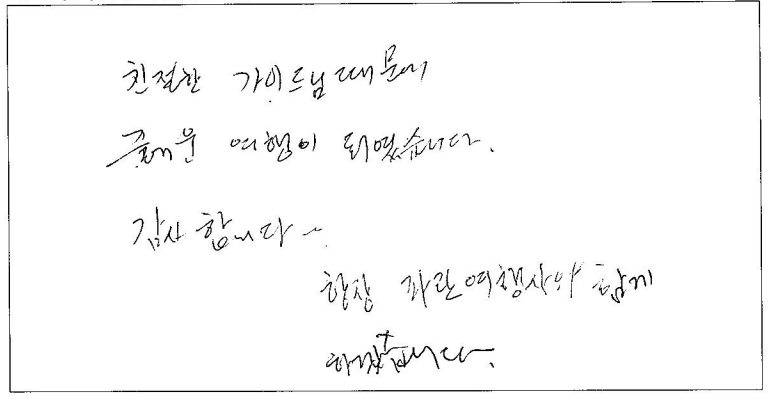 친절한 가이드님 때문에
즐거운 여행이 되었습니다.
감사합니다~
항상 파란여행사와 함께
하겠습니다.